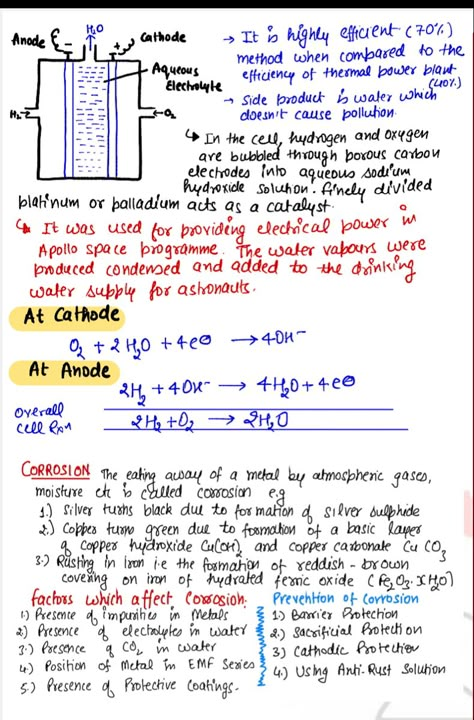 H₂O
Anode
Cathode
Aqueous
Electrolyte
H₂→
←O₂
→ It is highly efficient (70%)
method when compared to the
efficiency of thermal power plant
(40%)
→ Side product is water which
doesn't cause pollution.
↳ In the cell, hydrogen and oxygen
are bubbled through porous carbon
electrodes into aqueous sodium
hydroxide solution. Finely divided
platinum or palladium acts as a catalyst.
↳ It was used for providing electrical power in
Apollo space programme. The water vapours were
produced condensed and added to the drinking
water supply for astronauts.
At Cathode
O₂ + 2H₂O + 4e⊖ → 4OH⁻
At Anode
2H₂ + 4OH⁻ → 4H₂O + 4e⊖
overall
cell Rxn
2H₂ + O₂ → 2H₂O
CORROSION The eating away of a metal by atmospheric gases,
moisture etc is called corrosion e.g
1.) Silver turns black due to formation of silver sulphide
2.) Copper turns green due to formation of a basic layer
of copper hydroxide Cu(OH)₂ and copper carbonate CuCO₃
3.) Rusting in iron i.e the formation of reddish-brown
covering on iron of hydrated ferric oxide (Fe₂O₃.xH₂O)
factors which affect Corrosion.
1) Presence of impurities in Metals
2) Presence of electrolytes in water
3.) Presence of CO₂ in water
4.) Position of Metal in EMF Series
5.) Presence of Protective Coatings.
Prevention of Corrosion
1) Barrier Protection
2.) Sacrificial Protection
3) Cathodic Protection
4.) Using Anti-Rust Solution